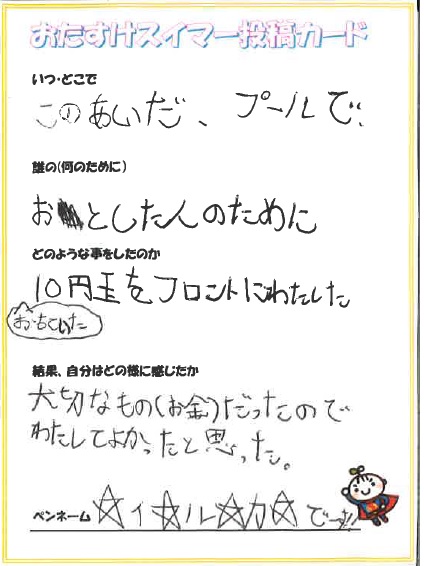 おたすけスイマー投稿カード
いつ・どこで
このあいだ、プールで、
誰の(何のために)
おとした人のために
どのような事をしたのか
10円玉をフロントにわたした
おちていた
結果、自分はどの様に感じたか
大切なもの(お金)だったので
わたしてよかったと思った。
ペンネーム ☆イ☆ル☆カ☆でーす!!